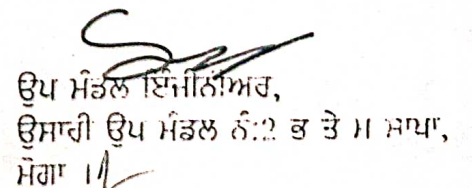 ਉਪ ਮੰਡਲ ਇੰਜੀਨੀਅਰ,
ਉਸਾਰੀ ਉਪ ਮੰਡਲ ਨੰ:2 ਭ ਤੇ ਮ ਸ਼ਾਖਾ,
ਮੋਗਾ ।